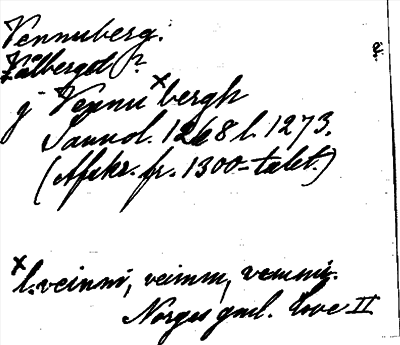 Vennuberg.
Vålbergets?
j Vennu ˣ bergh
Saund. 1268 l. 1273.
(Afskr. fr. 1300-talet.)
ˣ l. veinni, veinnu, vennui.
Norges gml. Love II